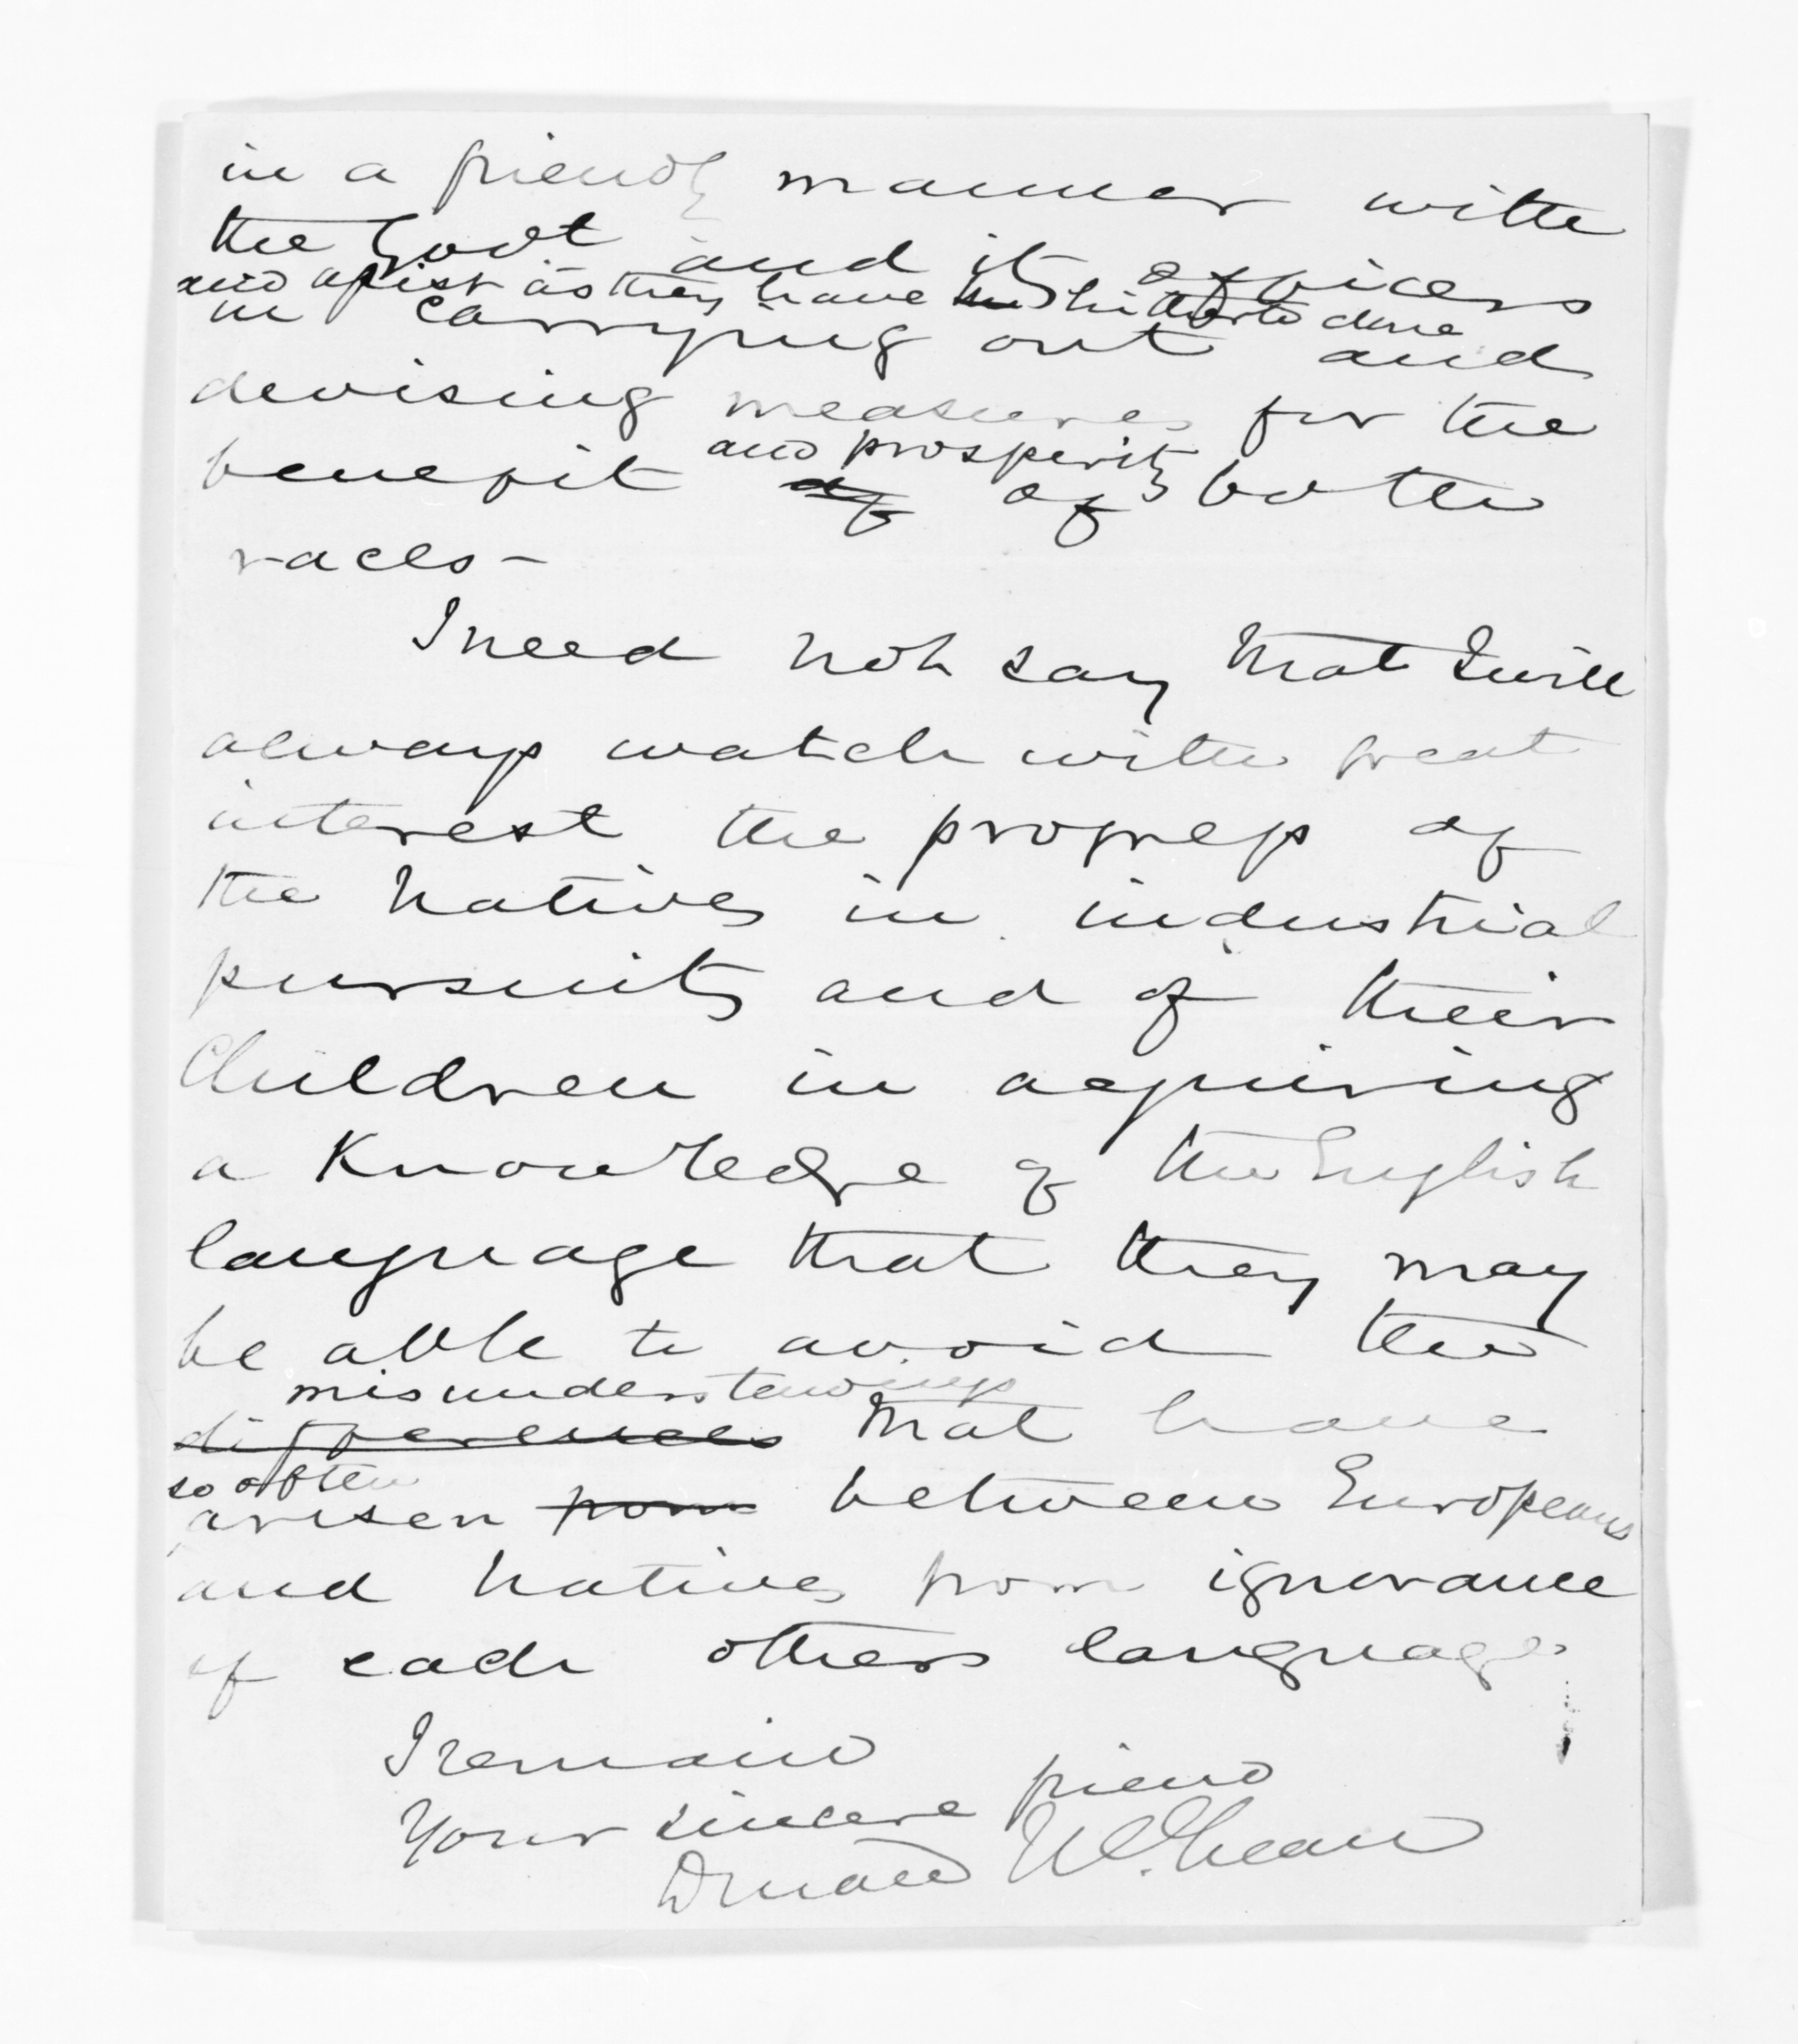 in a friendly manner with
the Govt and its officers
and assist as they have hitherto done
in carrying out and
devising measures for the
and prosperity
benefit of of both
races -
I need not say that I will
always watch with great
interest the progress of
the natives in industrial
pursuits and of their
Children in acquiring
a Knowledge of the English
language that they may
be able to avoid the
misunderstandings
differences that have
so often
arisen from between Europeans
and natives from ignorance
of each others language
I remain
Your sincere friend
Donald McLean